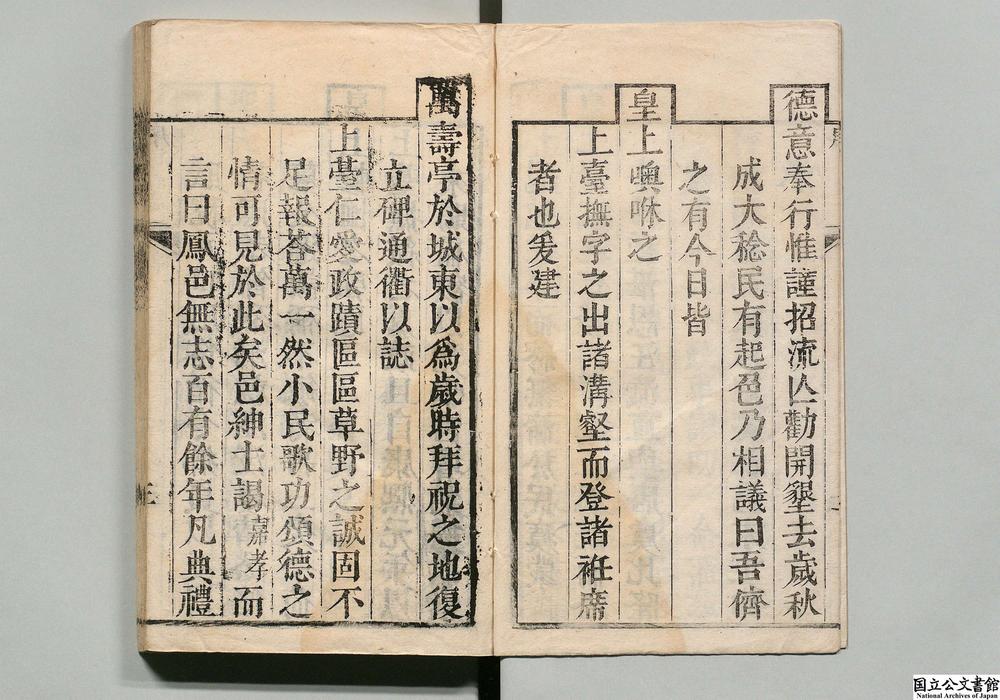 德意奉行惟謹招流亾勸開墾去歲秋
成大稔民有起色乃相議曰吾儕
之有今日皆
皇上噢咻之
上臺撫字之出諸溝壑而登諸袵席
者也爰建
萬壽亭於城東以爲歲時拜祝之地復
立碑通衢以誌
上臺仁愛政蹟區區草野之誠固不
足報荅萬一然小民歌功頌德之
情可見於此矣邑紳士謁嘉孝而
言曰鳳邑無志百有餘年凡典禮
国立公文書館
National Archives of Japan